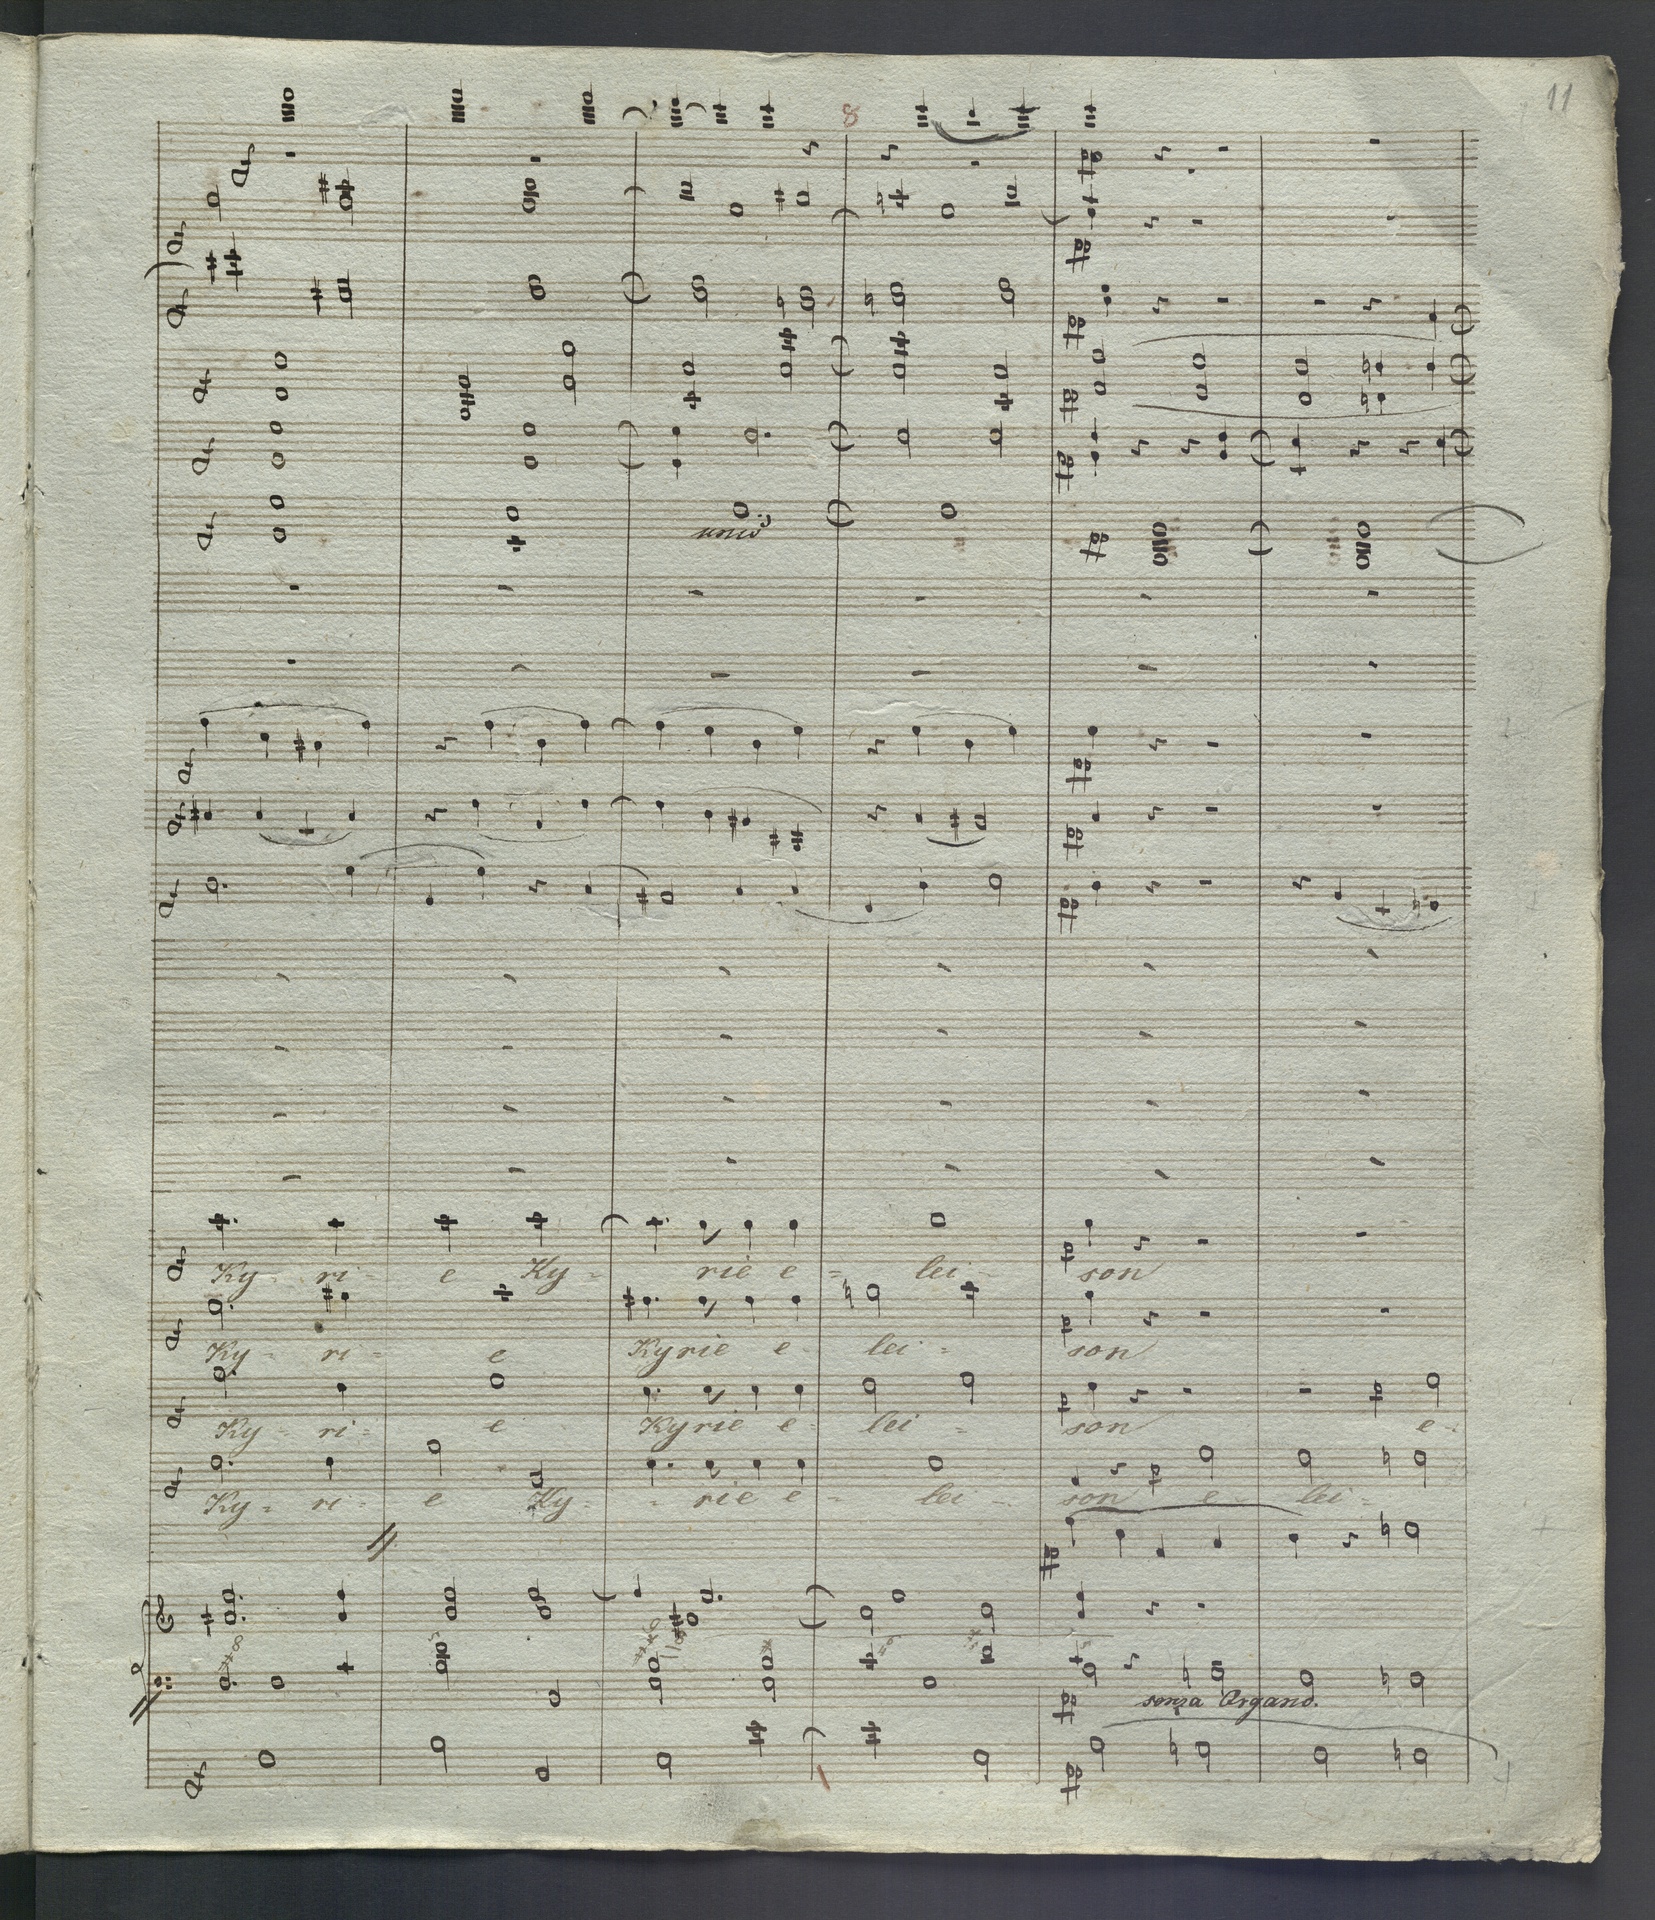 11
8
unis
Ky- ri- e Ky- rie e- lei- son
Ky- ri- e Kyrie e- lei- son
Ky- ri- e Kyrie e- lei- son e-
Ky- ri- e Ky- rie e- lei son e- lei-
senza Organo.